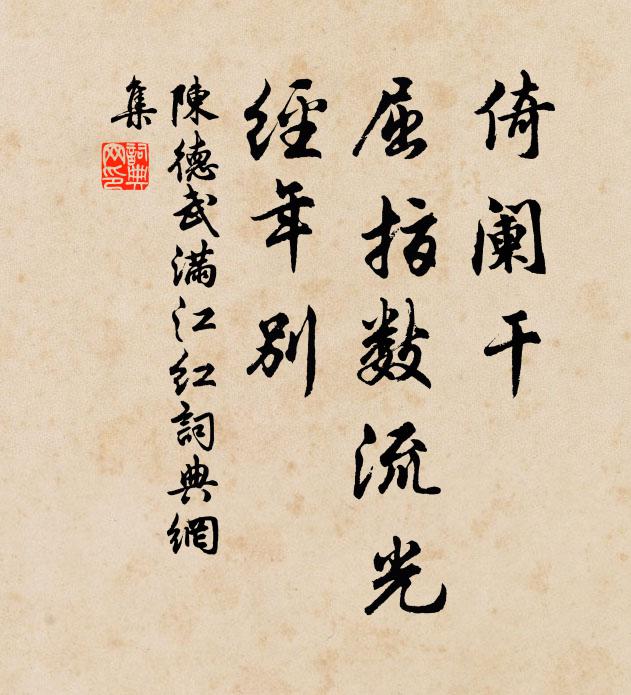 倚闌干
屈指数流光
經年別
陳德武滿江紅詞典網
集
詞典
网印